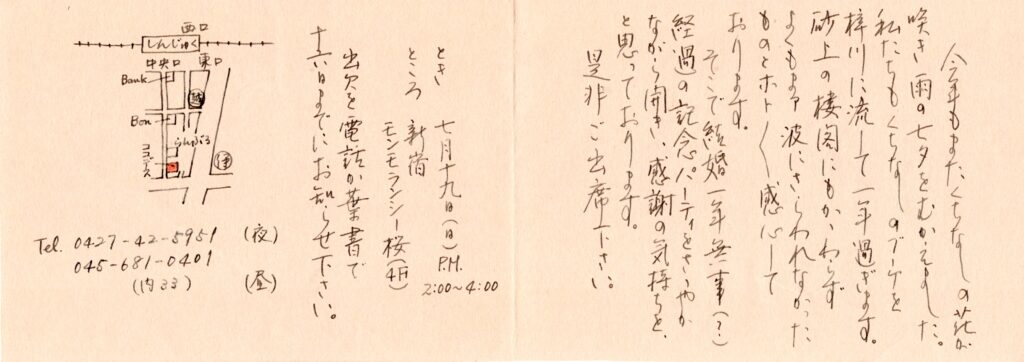 今年もまたくちなしの花が
咲き雨の七夕をむかえました。
私たちもくちなしのブーケを
梓川に流して一年過ぎます。
砂上の楼閣にもかかわらず
よくもまァ波にさらわれなかった
ものとホトホト感心して
おります。
そこで結婚一年無事(?)
経過の記念パーティをささやか
ながら開き、感謝の気持ちを、
と思っております。
是非ご出席下さい。
とき 七月十九日(日) P.M. 2:00〜4:00
ところ 新宿
モンモランシー桜(4F)
出欠を電話か葉書で
までにお知らせ下さい。
西口
しんじゅく
中央口 東口
Bank
Bon
らんぶる
Tel. 0427-42-5951 (夜)
045-681-0401
(内33) (昼)